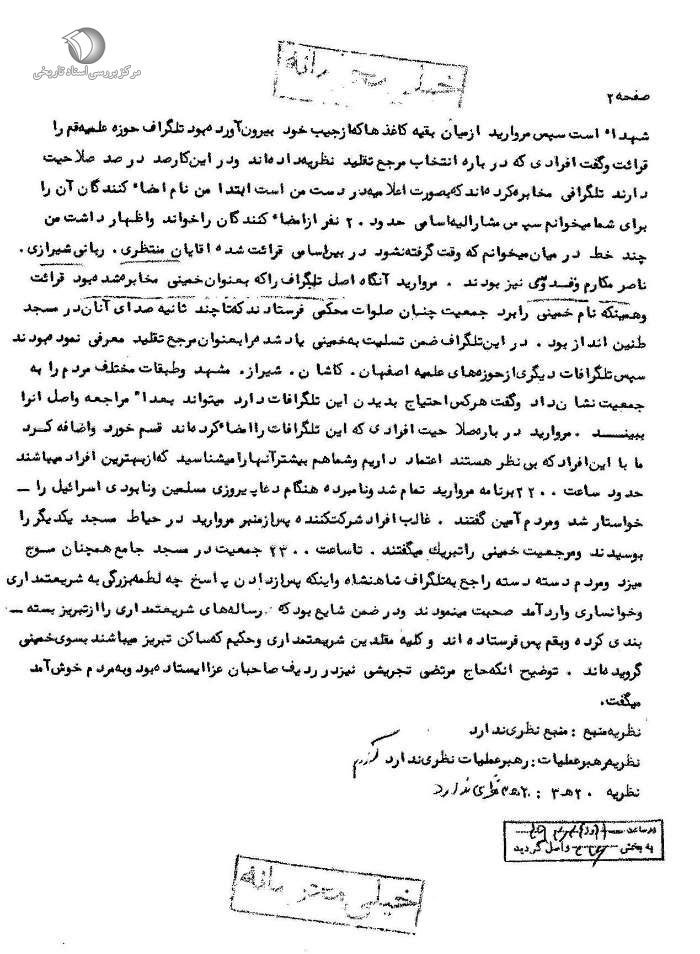 مرکز بررسی اسناد تاریخی
خیلی محرمانه
صفحه ۲
شهداء است سپس مروارید ازمیان بقیه کاغذهاکه ازجیب خود بیرون آورده بود تلگراف حوزه علمیه قم را
قرائت وگفت افرادی که در باره انتخاب مرجع تقلید نظریه داده اند ودر این کارصد در صد صلاحیت
دارند تلگرافی مخابره کرده اند که بصورت اعلامیه در دست من است ابتدا من نام امضاء کنندگان آن را
برای شما میخوانم سپس مشارالیه اسامی حدود ۲۰ نفر ازامضاء کنندگان راخواند واظهار داشت من
چند خط در میان میخوانم که وقت گرفته نشود در بین اسامی قرائت شده اقایان منتظری . ربانی شیرازی .
ناصر مکارم و نیز بودند . مروارید آنگاه اصل تلگراف راکه بعنوان خمینی مخابره شده بود قرائت
وهمینکه نام خمینی رابرد جمعیت چنان صلوات محکمی فرستادند که تا چند ثانیه صدای آنان در مسجد
طنین انداز بود . در این تلگراف ضمن تسلیت به خمینی یاد شده رابعنوان مرجع تقلید معرفی نموده بودند
سپس تلگرافات دیگری ازحوزه های علمیه اصفهان . کاشان . شیراز . مشهد وطبقات مختلف مردم را به
جمعیت نشان داد وگفت هرکس احتیاج بدیدن این تلگرافات دارد میتواند بعداً مراجعه واصل آنرا
ببیند . مروارید در باره صلاحیت افرادی که این تلگرافات را امضاء کرده اند قسم خورد واضافه کرد
ما با این افراد که بی نظر هستند اعتماد داریم وشما هم بیشتر آنها را میشناسید که ازبهترین افراد میباشند
حدود ساعت ۲۲۰۰ برنامه مروارید تمام شد ونامبرده هنگام دعا پیروزی مسلمین ونابودی اسرائیل را ــ
خواستار شد ومردم آمین گفتند . غالب افراد شرکت کننده پس ازمنبر مروارید در حیاط مسجد یکدیگر را
بوسیدند ومرجعیت خمینی راتبریک میگفتند . تا ساعت ۲۳۰۰ جمعیت در مسجد جامع همچنان موج
میزد ومردم دسته دسته راجع به تلگراف شاهنشاه واینکه پس ازدادن پاسخ چه لطمه بزرگی به شریعتمداری
وخوانساری وارد آمد صحبت مینمودند ودر ضمن شایع بود که رساله های شریعتمداری را از تبریز بسته ــ
بندی کرده وبقم پس فرستاده اند وکلیه مقلدین شریعتمداری وحکیم که ساکن تبریز میباشند بسوی خمینی
گرویده اند . توضیح انکه حاج مرتضی تجریشی نیز در ردیف صاحبان عزا ایستاده بود وبه مردم خوش آمد
میگفت.
نظریه منبع : منبع نظری ندارد
نظریه رهبر عملیات : رهبر عملیات نظری ندارد
نظریه ۲۰ ه ۳ : ۲۰ ه ۳ نظری ندارد
در ساعت
به بخش واصل گردید
خیلی محرمانه